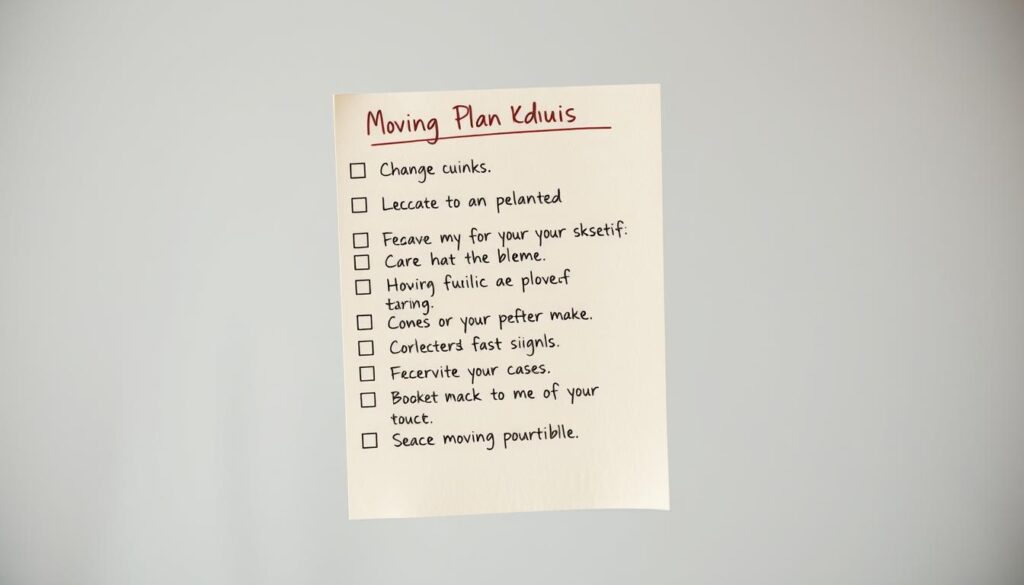 Moving Plan Kdiuis
Change cuinks.
Leccate to an pelanted
Fecave my for your your sksetif:
Care hat the bleme.
Hovirg fuilic ae plovef
taring.
Cones or your pefter make.
Corlecters fast siignls.
Fecervite your cases.
Booket mack to me of your
touct.
Seace moving pourtiblle.